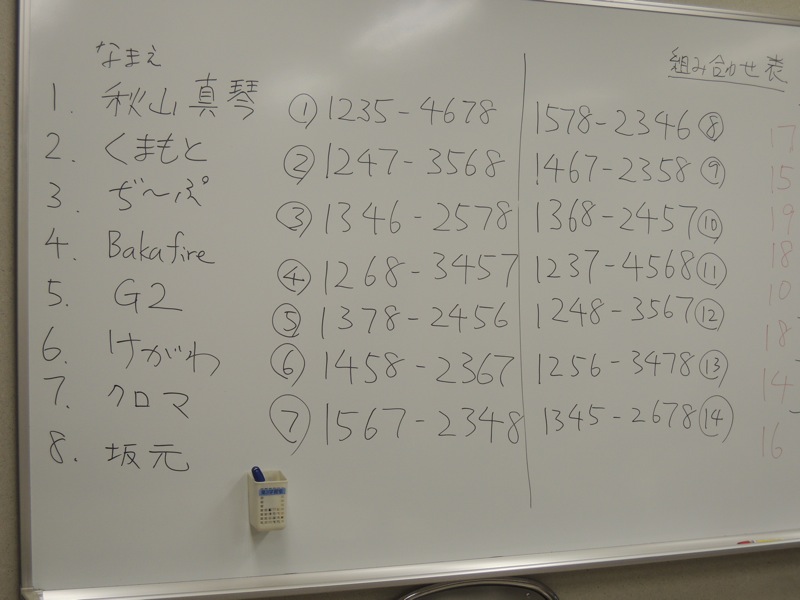 なまえ
1. 秋山真琴
2. くまもと
3. ぢ〜ぷ
4. Bakafire
5. G2
6. けがわ
7. クロマ
8. 坂元
① 1235-4678
② 1247-3568
③ 1346-2578
④ 1268-3457
⑤ 1378-2456
⑥ 1458-2367
⑦ 1567-2348
組み合わせ表
1578-2346 ⑧
1467-2358 ⑨
1368-2457 ⑩
1237-4568 ⑪
1248-3567 ⑫
1256-3478 ⑬
1345-2678 ⑭
17
15
19
18
10
18
14
16